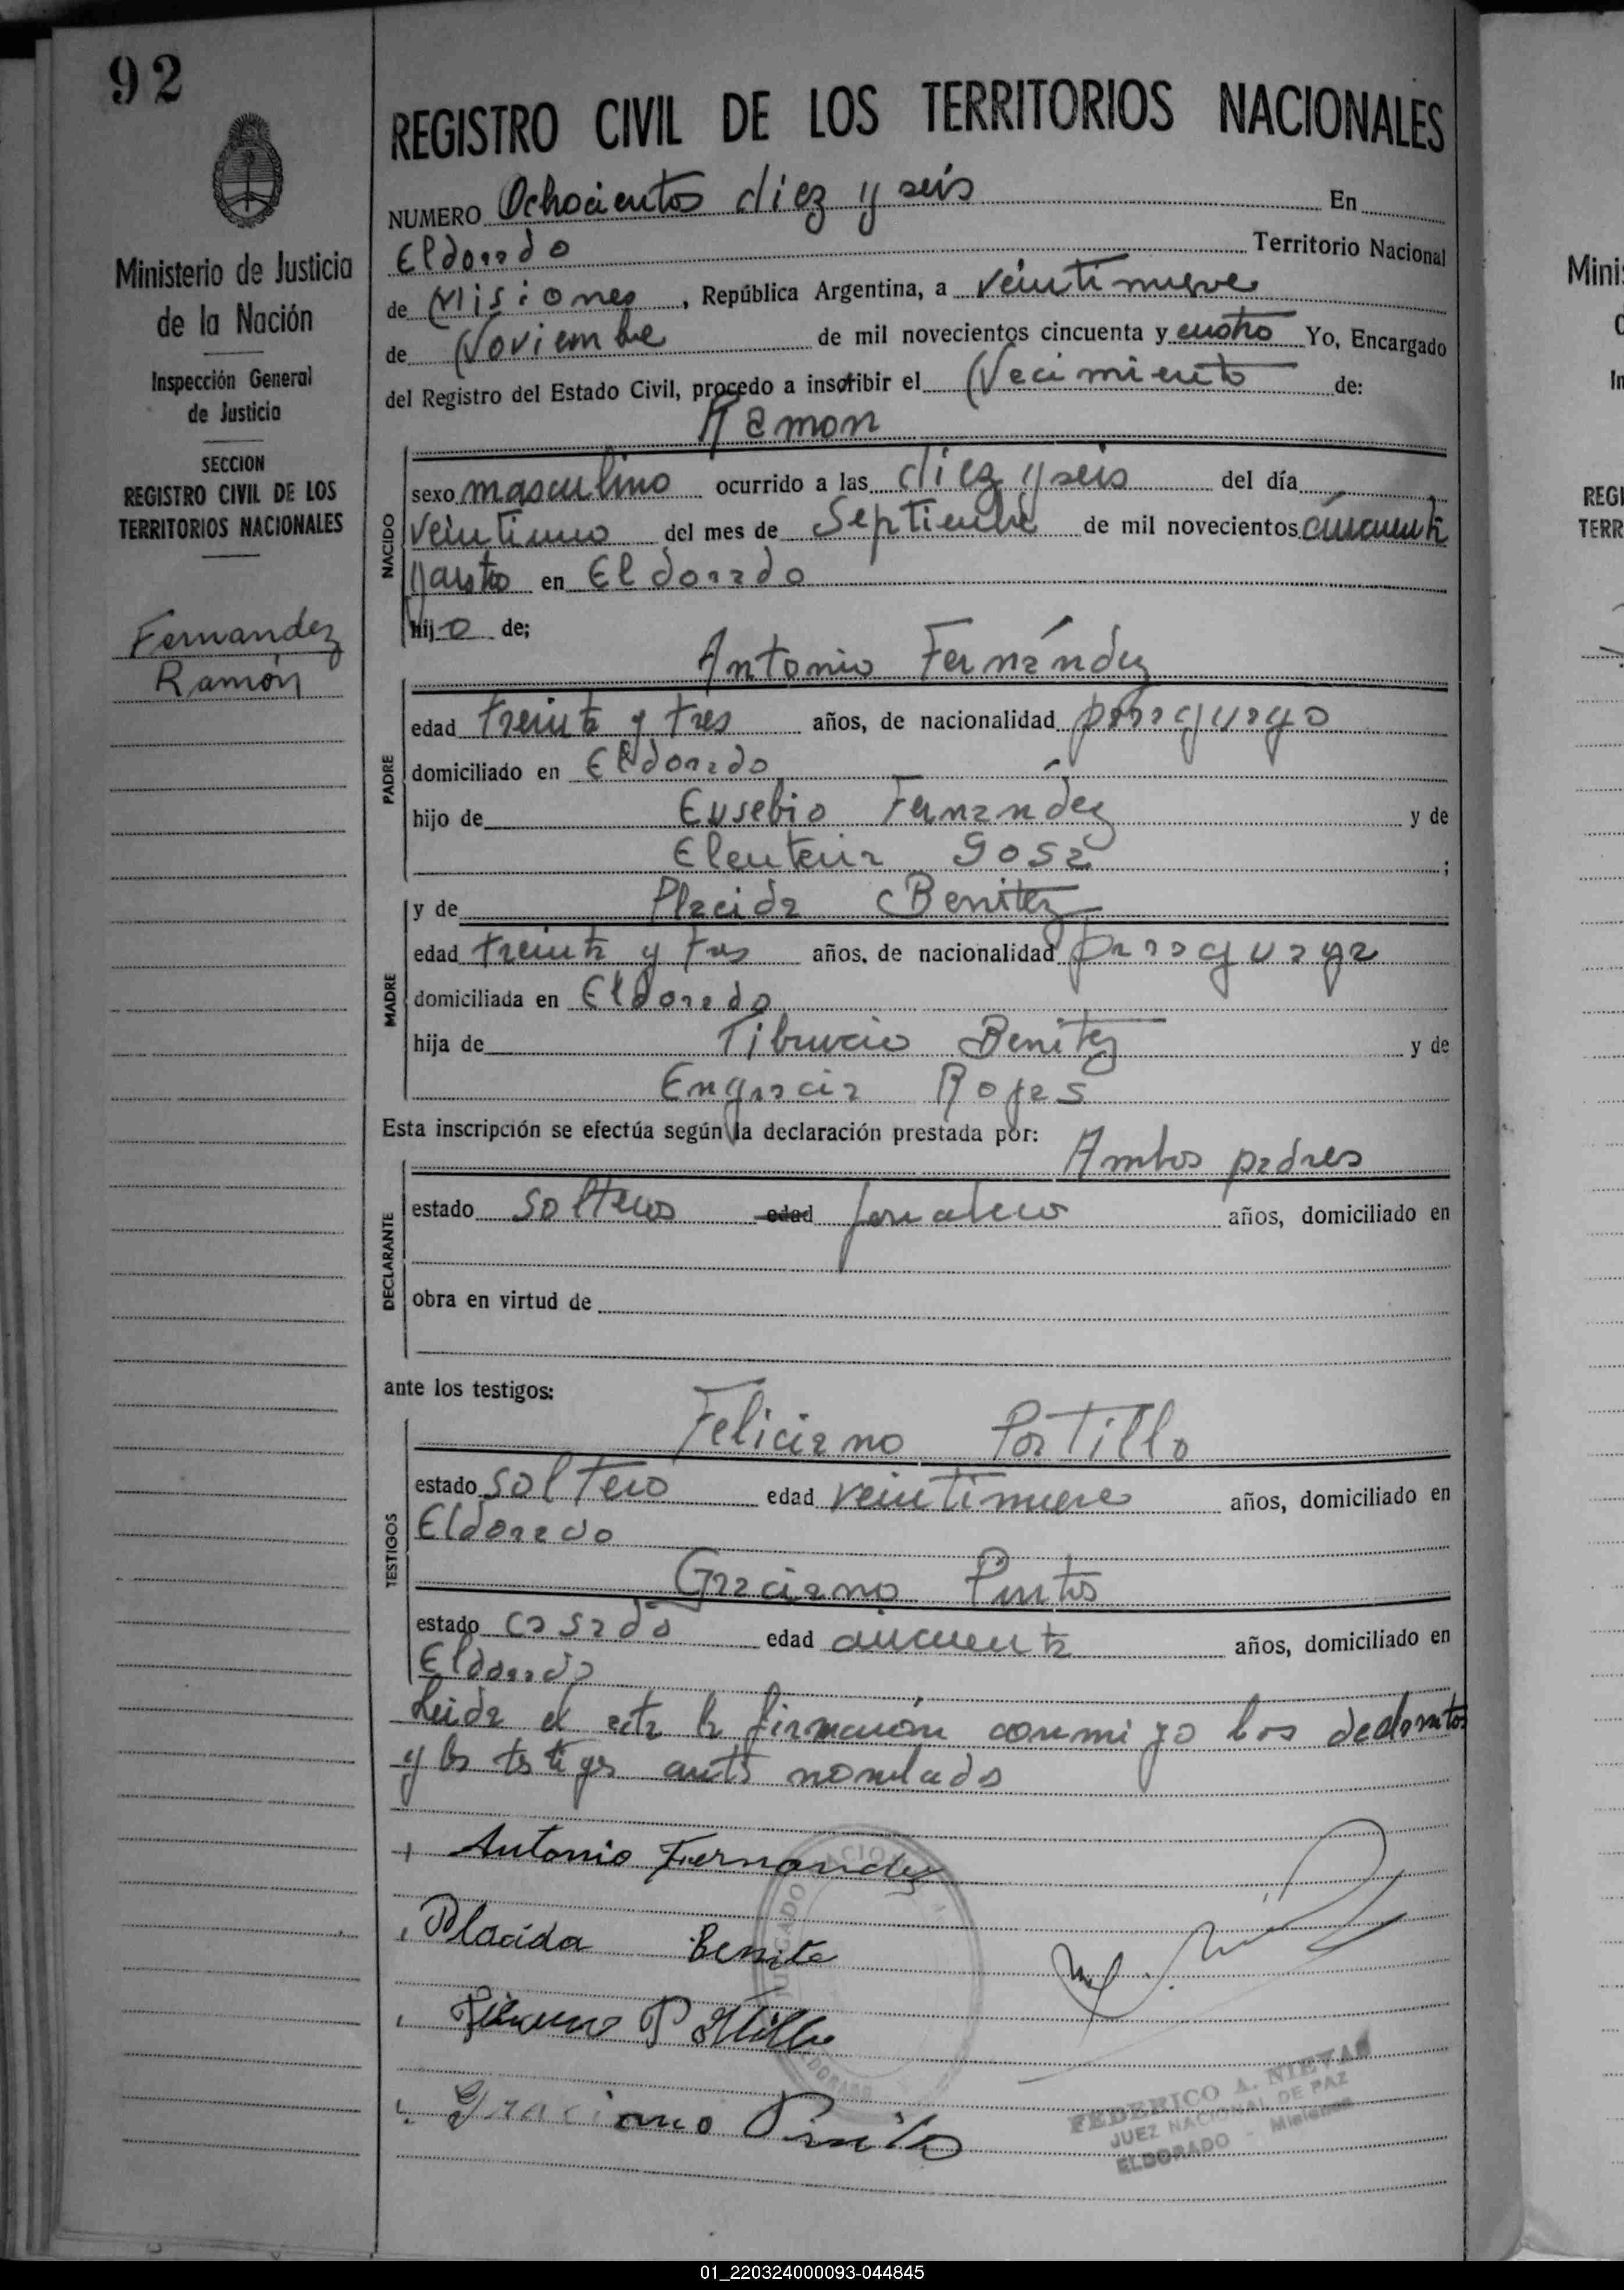 92
Ministerio de Justicia
de la Nación
Inspección General
de Justicia
SECCION
REGISTRO CIVIL DE LOS
TERRITORIOS NACIONALES
Fernandez
Ramón
REGISTRO CIVIL DE LOS TERRITORIOS NACIONALES
NUMERO Ochocientos diez y seis En
Eldorado Territorio Nacional
de Misiones, República Argentina, a veintinueve
de Noviembre de mil novecientos cincuenta y cuatro Yo, Encargado
del Registro del Estado Civil, procedo a inscribir el Nacimiento de:
Ramon
NACIDO
sexo masculino ocurrido a las diez y seis del día
veintiuno del mes de Septiembre de mil novecientos cincuenta
y cuatro en Eldorado
hijo de;
Antonio Fernández
PADRE
edad treinta y tres años, de nacionalidad paraguayo
domiciliado en Eldorado
hijo de Eusebio Fernández y de
Eleuteria Sosa;
MADRE
y de Placida Benitez
edad treinta y tres años, de nacionalidad paraguaya
domiciliada en Eldorado
hija de Tiburcio Benitez y de
Engracia Rojas
Esta inscripción se efectúa según la declaración prestada por:
Ambos padres
DECLARANTE
estado solteros edad jornalero años, domiciliado en
obra en virtud de
ante los testigos:
Feliciano Portillo
TESTIGOS
estado soltero edad veintinueve años, domiciliado en
Eldorado
Graciano Pinto
estado casado edad cincuenta años, domiciliado en
Eldorado
Leida el acta la firmaron conmigo los declarantes
y los testigos antes nombrados
Antonio Fernandez
Placida Benite
Feliciano Portillo
Graciano Pinto
FEDERICO A. NIEVAS
JUEZ NACIONAL DE PAZ
ELDORADO - Misiones
01_220324000093-044845